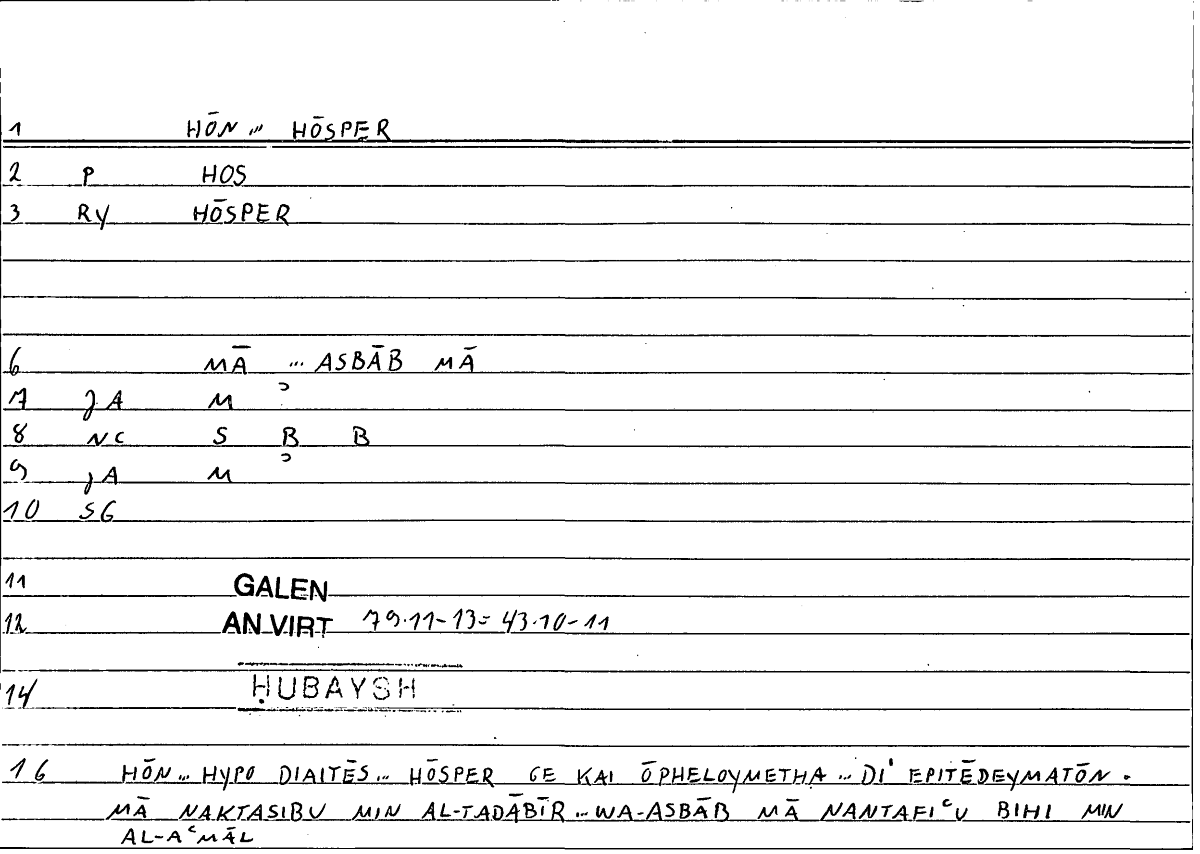 1 HŌN ... HŌSPER
2 P HOS
3 RY HŌSPER
6 MĀ ... ASBĀB MĀ
7 JA M ʾ
8 NC S B B
9 JA M ʾ
10 SG
11 GALEN
12 AN VIRT 79.11-13= 43.10-11
14 ḤUBAYSH
16 HŌN ... HYPO DIAITĒS ... HŌSPER GE KAI ŌPHELOYMETHA ... DI' EPITĒDEYMATŌN .
MĀ NAKTASIBU MIN AL-TADĀBĪR ... WA-ASBĀB MĀ NANTAFIʿU BIHI MIN
AL-AʿMĀL